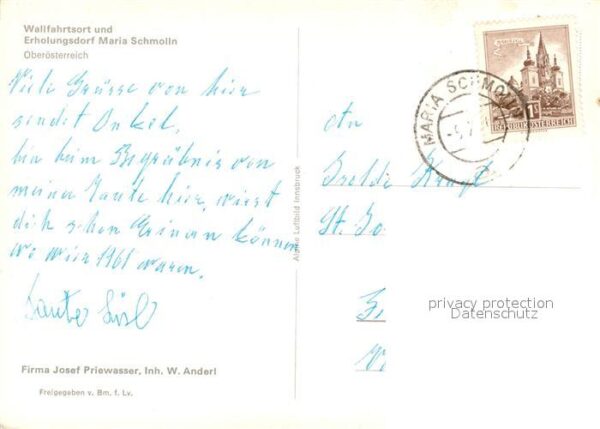 Wallfahrtsort und
Erholungsdorf Maria Schmolln
Oberösterreich
Viele Grüsse von hier
sendet Onkel,
bin beim Begräbnis von
meiner Tante hier, wirst
dich schon Erinnern können
wo wir 1961 waren.
Firma Josef Priewasser, Inh. W. Anderl
Freigegeben v. Bm. f. Lv.
Alpine Luftbild Innsbruck
MARIA SCHMOLLN
1S
REPUBLIK ÖSTERREICH
An
St. Jo
privacy protection
Datenschutz